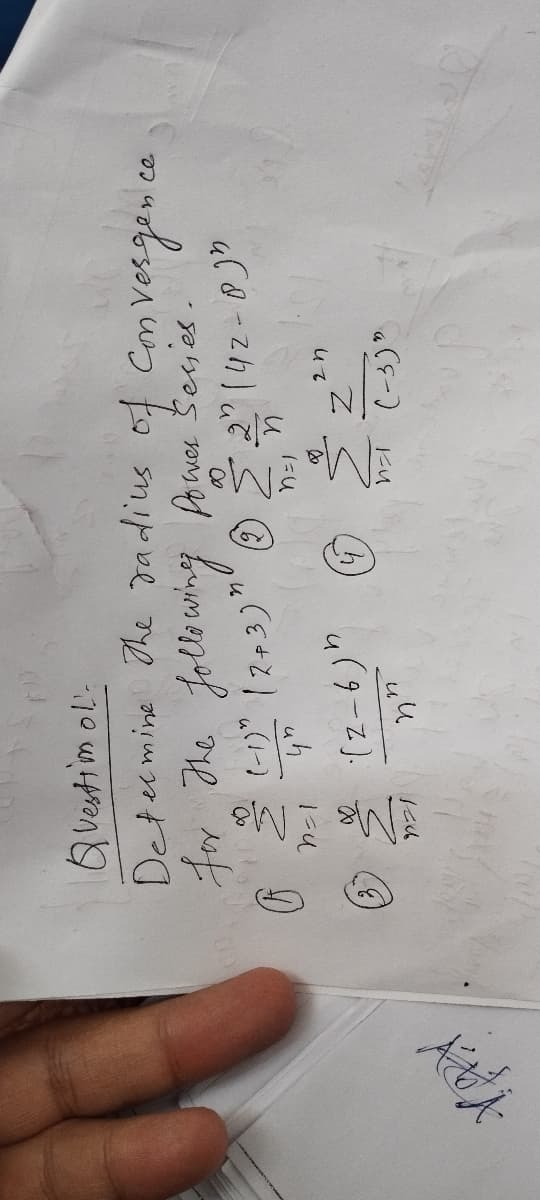 Question 01:-
Determine The radius of Convergence
for The following Power Series.
① ∞ Σ n=1 (-1)ⁿ/4ⁿ (z+3)ⁿ ② ∞ Σ n=1 2ⁿ/n (4z-8)ⁿ
③ ∞ Σ n=1 (z-6)ⁿ/nⁿ ④ ∞ Σ n=1 z²ⁿ/(-3)ⁿ